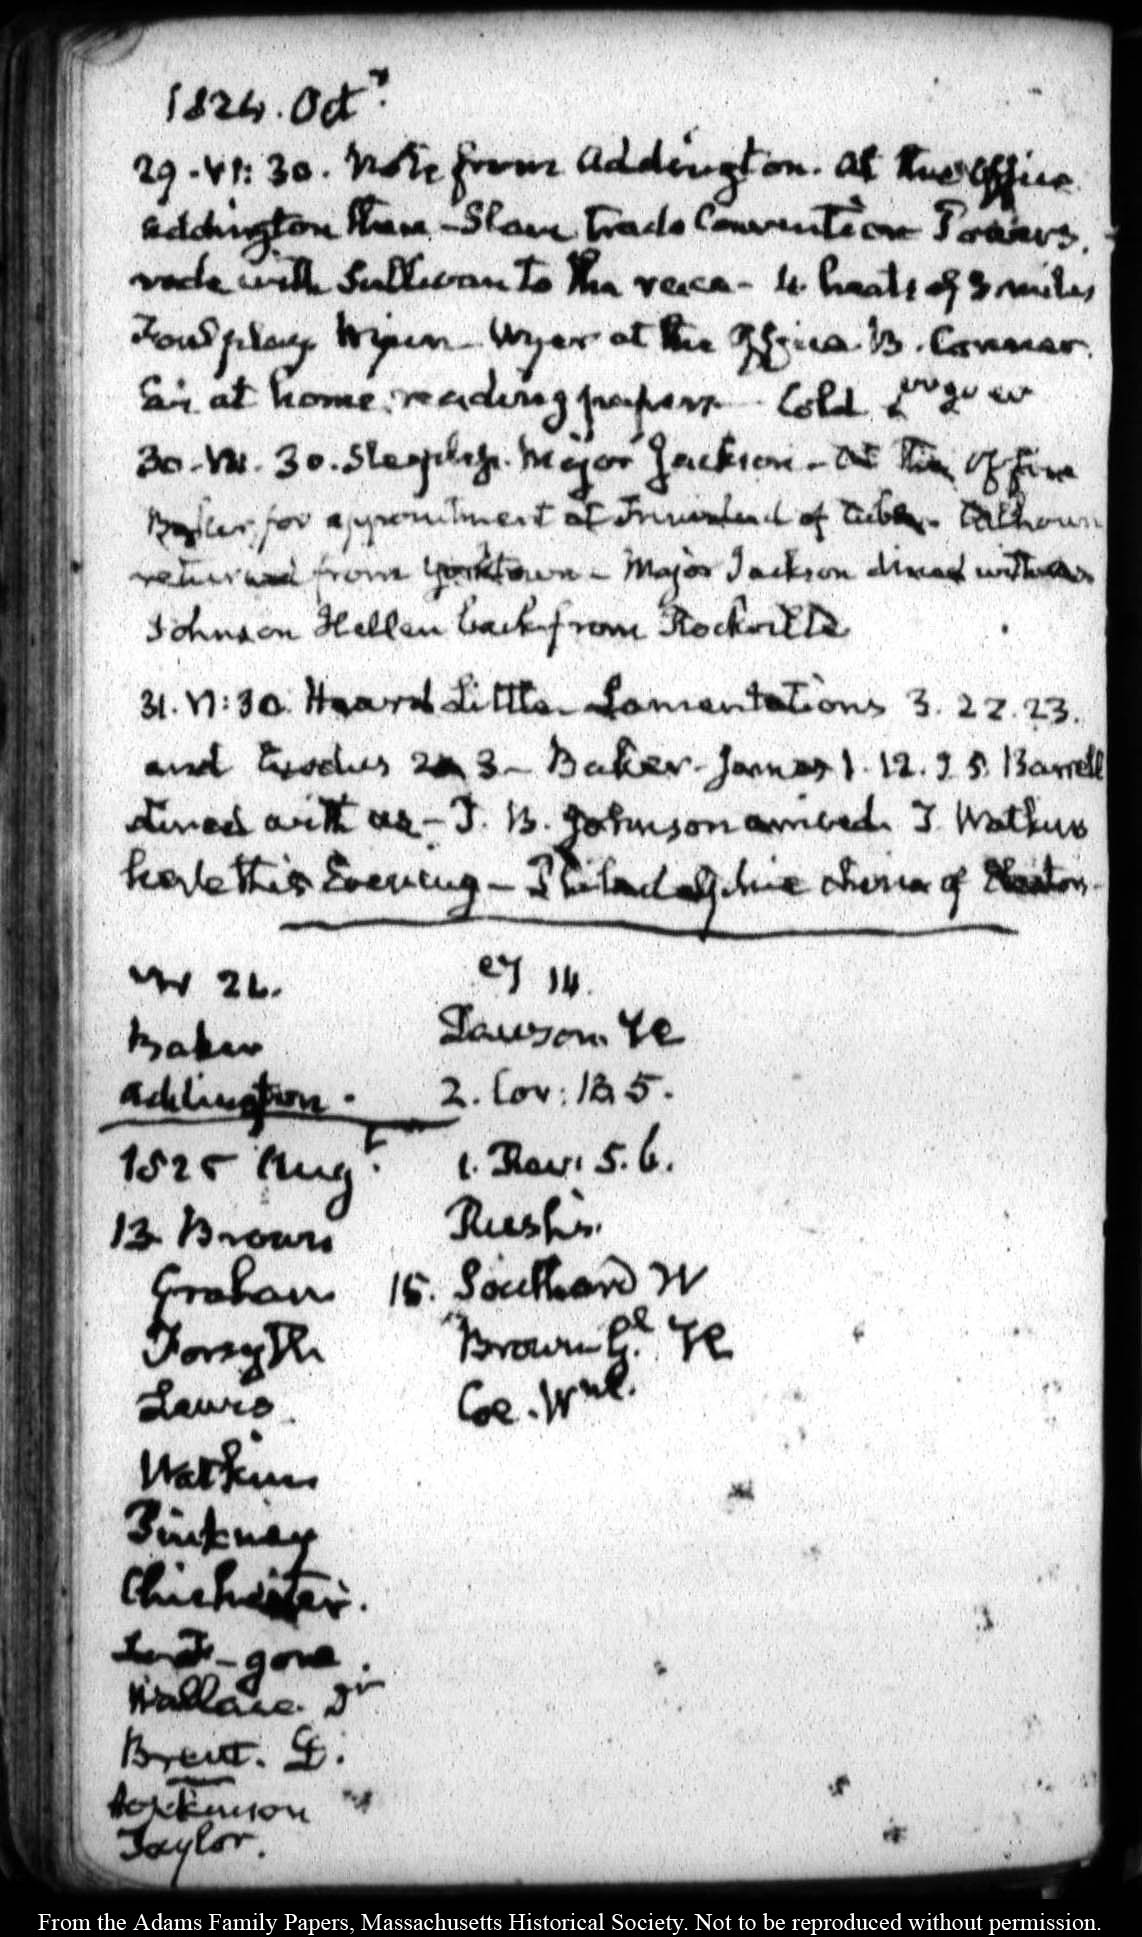 1824. Octr.
29. VI: 30. Note from Addington. At the Office
Addington there — Slave trade Convention Powers.
rode with Sullivan to the race — 4 heats of 3 miles
Foul play — Wyer at the Office. B. Connor.
Eve at home. reading papers — Cold
30. VI. 30. Sleepless. Major Jackson — At the Office
for appointment at Trinidad of Cuba. Calhoun
returned from Yorktown — Major Jackson dined with us
Johnson Hellen back from Rockville
31. VI: 30. Heard Little Lamentations 3. 22. 23.
and Exodus 3 — Baker — James 1. 12. 25. Barrell
dined with us — T. B. Johnson arrived. T. Watkins
here this Evening — Philadelphia of Electors —
26. 14.
Baker Lawson
Addington. 2. Cor: 13. 5.
1825 Augt. 1. Rev: 5. 6.
13 Brown Rush's.
Graham 15. Southard W
Forsyth Brown Gl.
Laws Coe. Wm.
Watkins
Pinkney
Chichester.
gone.
Wallace Dr
Brent. D.
Hopkinson
Taylor.
From the Adams Family Papers, Massachusetts Historical Society. Not to be reproduced without permission.